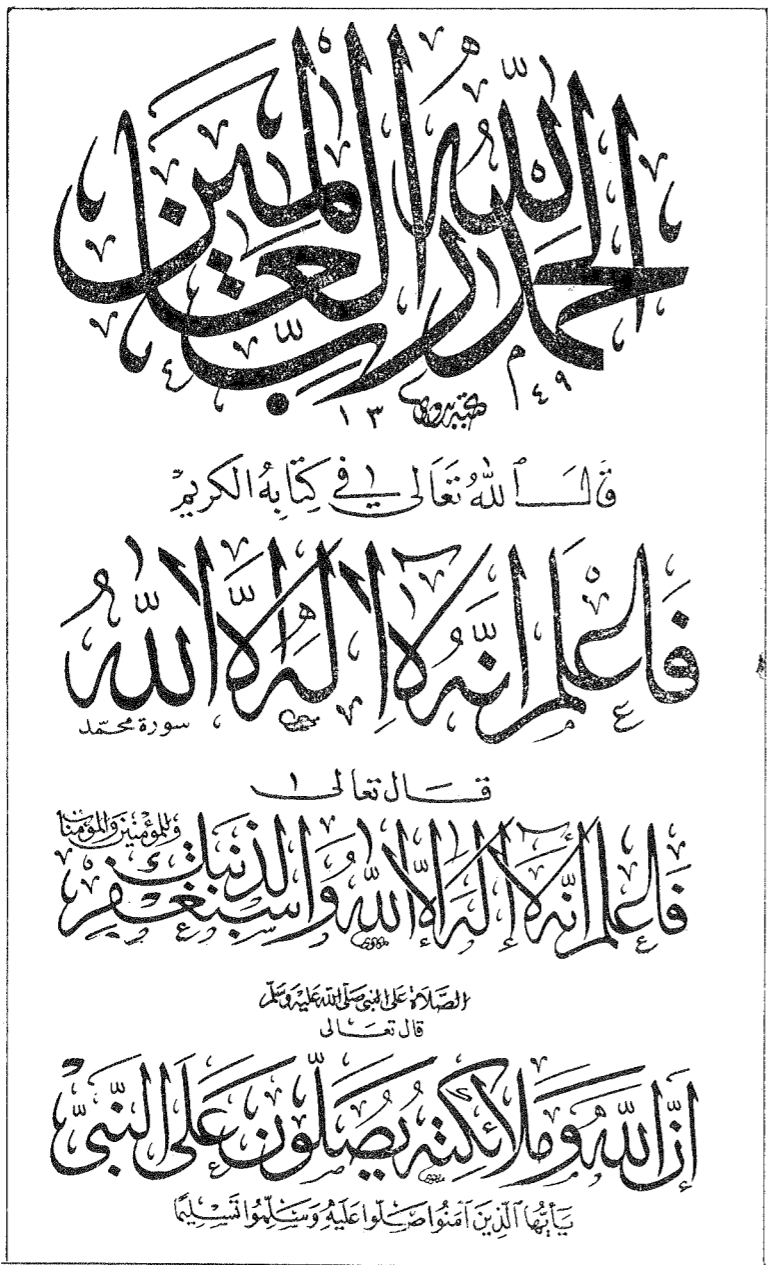 الحمد لله رب العالمين
١٣ ٤٩
قَالَ ٱللهُ تَعَالىٰ في كِتَابِهِ الكريمْ
فَاعْلَمْ اَنَّهُ لَآ اِلٰهَ اِلَّا اللّٰهُ
سورة محمّد
قال تعالىٰ
فَاعْلَمْ اَنَّهُ لَآ إِلٰهَ إِلَّا اللّٰهُ وَاسْتَغْفِرْ لِذَنْبِكَ وَلِلْمُؤْمِنِينَ وَالْمُؤْمِنَاتِ
الصَّلَاةُ عَلَى النَّبِي صَلَّى اللّٰه عَلَيْهِ وَسَلَّمْ
قال تعَالى
إِنَّ اللّٰهَ وَمَلَائِكَتَهُ يُصَلُّونَ عَلَى النَّبِيِّ
يَأَيُّهَا ٱلَّذِينَ آمَنُوا صَلُّوا عَلَيْهِ وَسَلِّمُوا تَسْلِيمًا